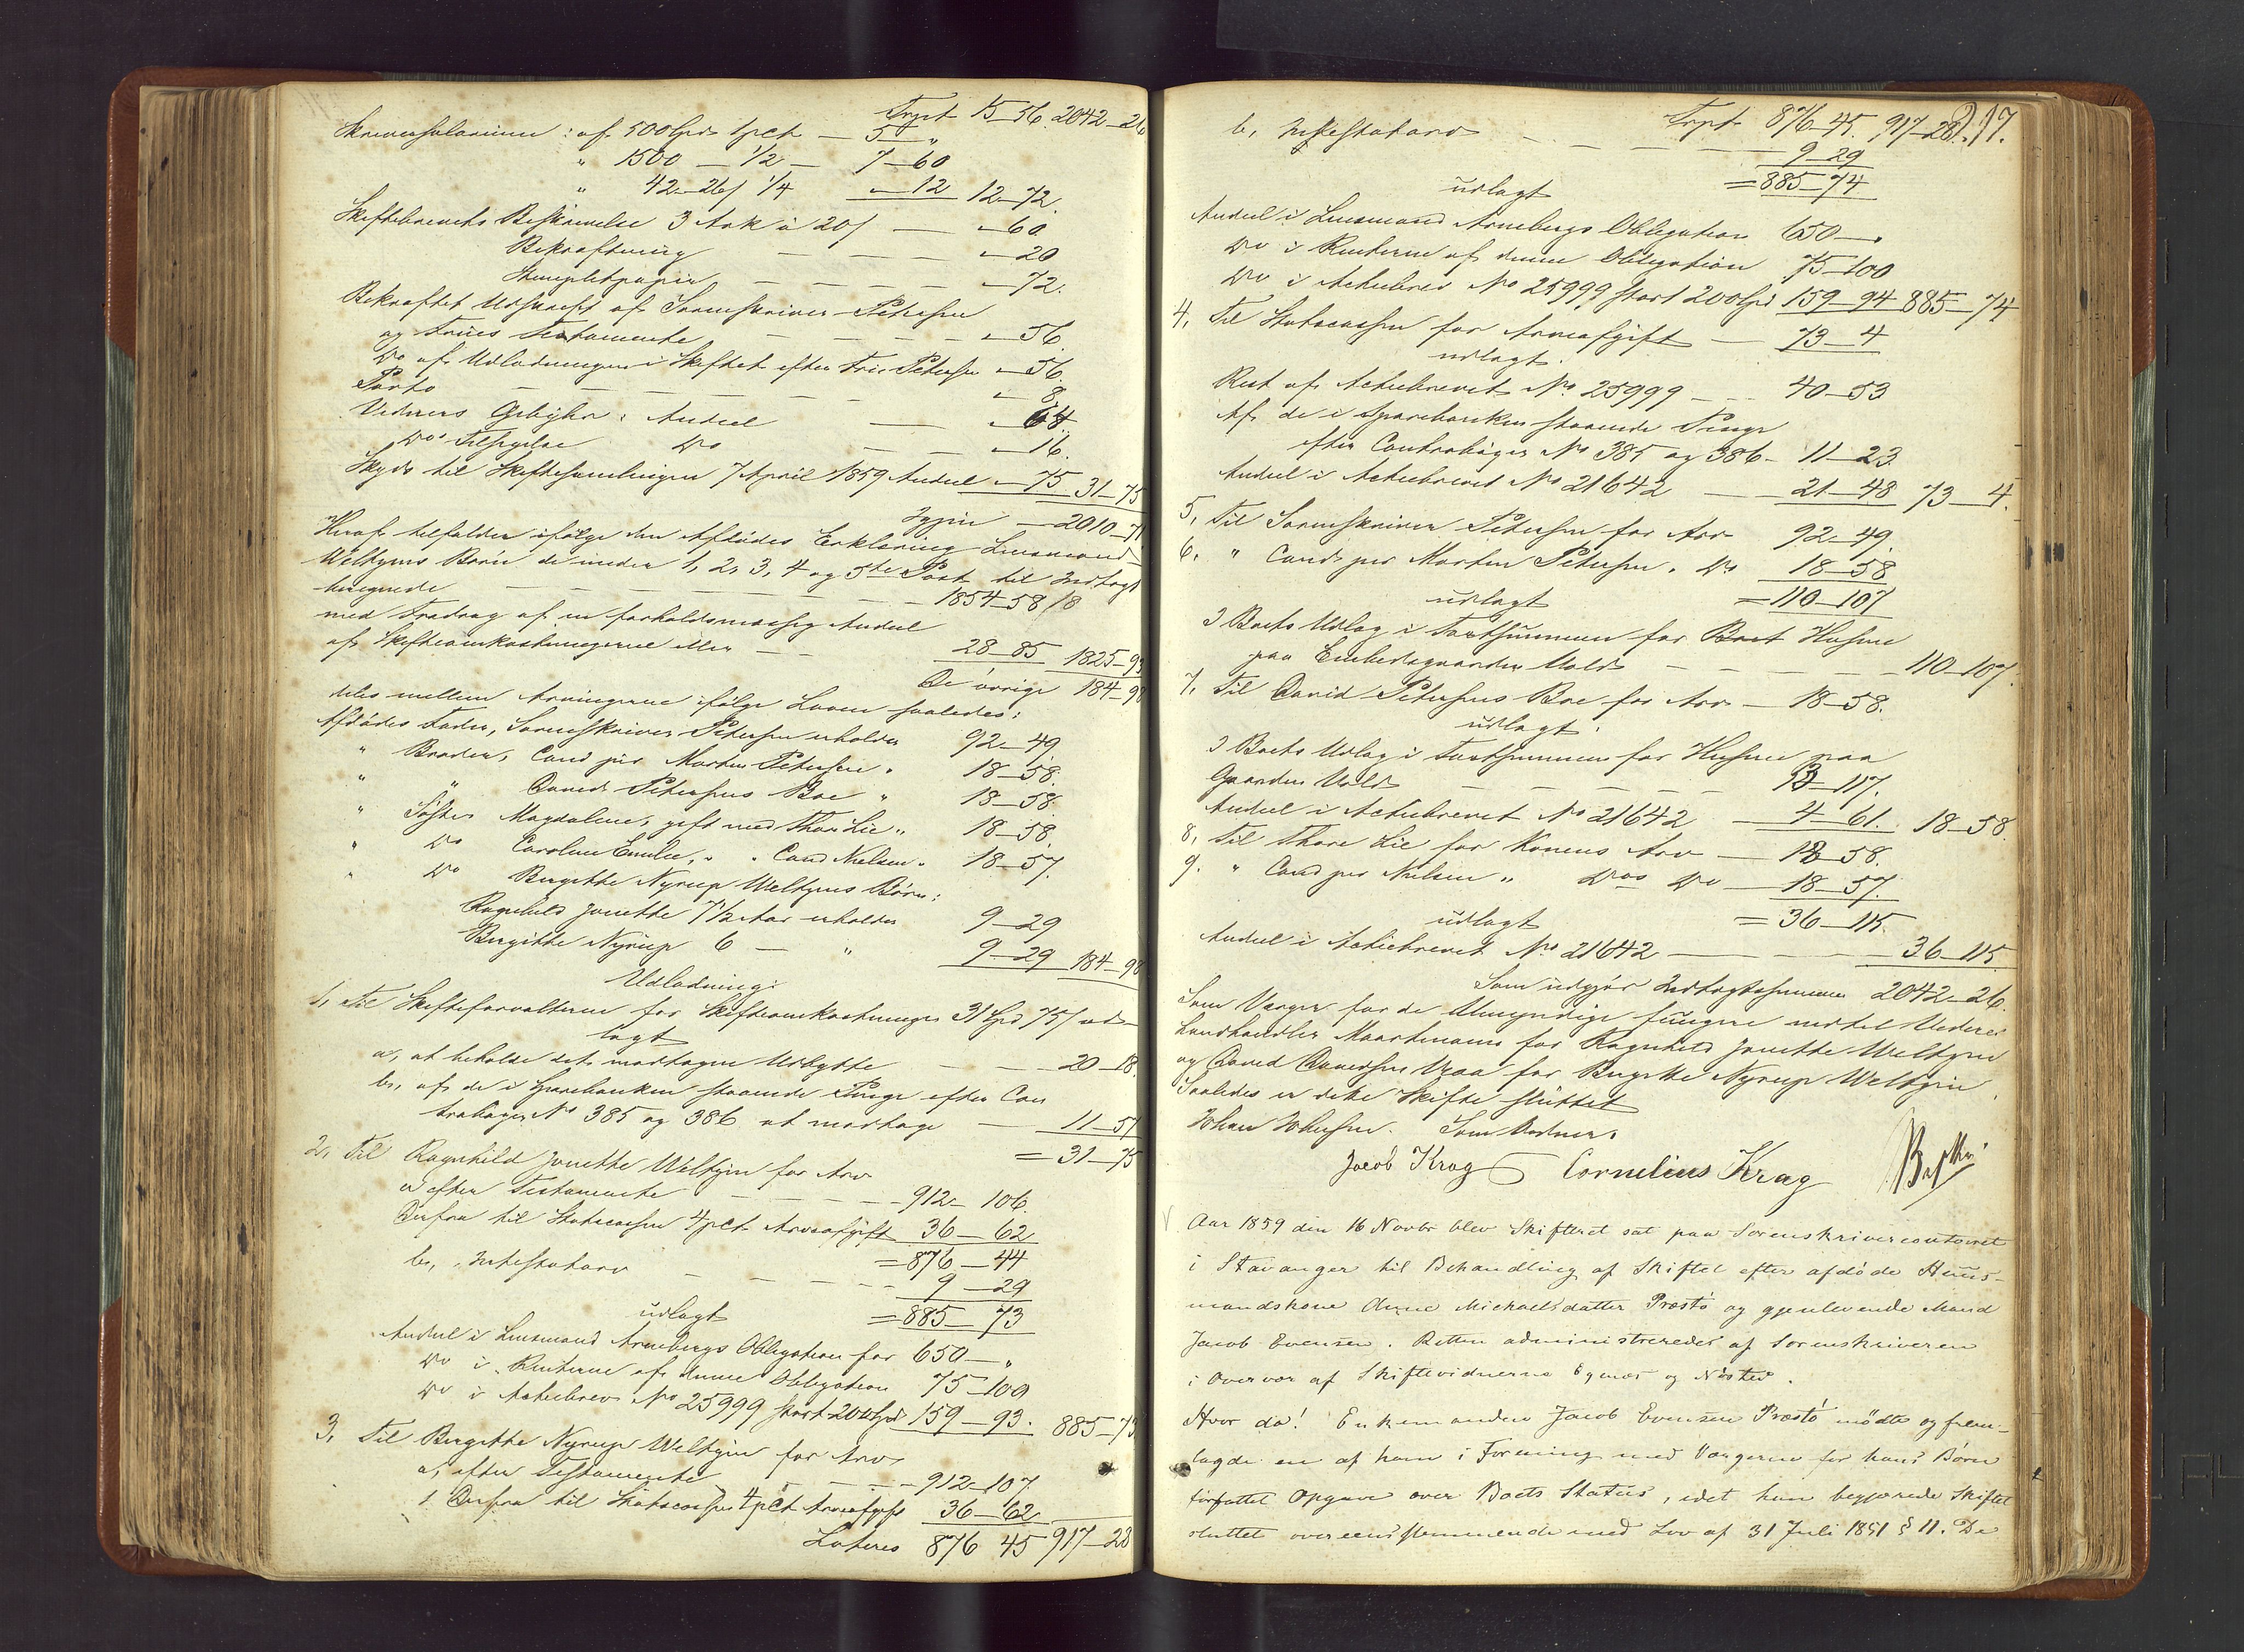 Trpt 15_56. 2042_26
Skriversalarium: af 500 Spd 1 pct _ 5_„
„ 1500 _ 1/2 _ 7_60
„ 42_26 / 1/4 „_12 12_72.
Skiftebrevets Beskrivelse 3 Ark à 20 / _ „_60
Bekræftning _ _ _ _ „_20
Stempletpapir _ _ _ _ „_72.
Bekræftet Udskrift af Sorenskriver Petersen
og Frues Testamente _ _ _ _ „_56.
Do af Udlodningen i Skiftet efter Frue Petersen „_56.
Porto _ _ _ _ _ „_8.
Vidners Gebyhr: Andeel _ _ „_64.
Dos Tilsigelse Do _ _ „_16.
Skyds til Skiftesamlingen 7 April 1859 Andeel „_75 31_75
Igjen _ 2010_71
Heraf tilfalder ifølge den Afdødes Erklæring Lensmand
Weltzins Børn de under 1, 2, 3, 4 og 5te Post til Indtægt
beregnede _ _ _ _ _ 1854_58/18
med Fradrag af en forholdsmæssig Andeel
af Skifteomkostningerne eller _ _ 28_85 1825_93
De øvrige 184_98
deles mellem Arvingerne ifølge Loven saaledes:
Afdødes Fader, Sorenskriver Petersen erholder 92_49.
„ Broder, Cand jur Morten Petersen „ 18_58.
„ „ David Petersens Boe „ 18_58.
„ Søster Magdalene, gift med Thore Lie „ 18_58.
„ Do Caroline Emilie, „ „ Cand Nielsen „ 18_57.
„ Do Birgitte Nyrup Weltzins Børn:
Ragnhild Jonette 7 1/2 Aar erholder 9_29
Birgitte Nyrup 6 _ „ 9_29 184_98
Udlodning:
1, Til Skifteforvalteren for Skifteomkostninger 31 Spd 75/ ud-
lagt
a, at beholde det modtagne Udbytte _ _ 20_18.
b, af de i Sparebanken staaende Penge efter Con
trabøger No 385 og 386 at modtage _ 11_57
= 31_75
2, Til Ragnhild Jonette Weltzin for Arv
a efter Testamente _ _ _ _ 912_106.
Derfra til Statscassen 4 pCt Arveafgift 36_62
= 876_44
b, Intestatarv _ _ _ _ 9_29
udlagt = 885_73
Andeel i Lensmand Arnebergs Obligation for 650_„
Do i Renterne af denne Obligation 75_100
Do i Actiebrev No 25999 stort 200 Spd 159_93. 885_73
3, Til Birgitte Nyrup Weltzin for Arv
a, efter Testamente _ _ _ _ 912_107.
Derfra til Statscassen 4 pCt Arveafgift 36_62
Lateres 876 45 917_28
Trpt 876_45. 917_28. 217.
b, Intestatarv _ _ _ _ 9_29
udlagt = 885_74
Andeel i Lensmand Arnebergs Obligation 650_„
Do i Renterne af denne Obligation 75_100
Do i Actiebrev No 25999 stort 200 Spd 159_94 885_74
4, Til Statscassen for Arveafgift _ 73_4
udlagt.
Rest af Actiebrevet No 25999 _ _ 40_53
Af de i Sparebanken staaende Penge
efter Contrabøger No 385 og 386 _ 11_23.
Andeel i Actiebrevet No 21642 _ _ 21_48 73_4.
5, Til Sorenskriver Petersen for Arv 92_49.
6, „ Cand jur Morten Petersen „ Do 18_58
udlagt = 110_107
I Boets Udlæg i Taxtsummen for Boet Husene
paa Embedsgaarden Vold _ _ _ _ 110_107.
7, Til David Petersens Boe for Arv _ 18_58.
udlagt.
I Boets Udlæg i Taxtsummen for Husene paa
Gaarden Vold _ _ _ _ 13_117.
Andeel i Actiebrevet No 21642 _ 4_61. 18_58.
8, Til Thore Lie for Konens Arv _ 18_58.
9, „ Cand jur Nielsen „ Dos Do _ 18_57.
udlagt = 36_115.
Andeel i Actiebrevet No 21642 _ _ _ _ 36_115
Som udgjør Indtægtssummen 2042_26.
Som Værger for de Umyndige fungere indtil Videre
Landhandler Maartmann for Ragnhild Jonette Weltzin
og David Davidsen Vraa for Birgitte Nyrup Weltzin.
Saaledes er dette Skifte sluttet
Johan Johnsen. Som Vidner.
Jacob Krag Cornelius Krag
Aar 1859 den 16 Novbr blev Skifteret sat paa Sorenskrivercontoiret
i Stavanger til Behandling af Skiftet efter afdøde Huus-
mandskone Anne Michaelsdatter Præstø og gjenlevende Mand
Jacob Evensen. Retten administreredes af Sorenskriveren
i Overvær af Skiftevidnerne og
Hvor da! Enkemanden Jacob Evensen Præstø mødte og frem-
lagde en af ham i Forening med Værgerne for hans Børn
forfattet Opgave over Boets Status, idet han begjærede Skiftet
sluttet overeensstemmende med Lov af 31 Juli 1851 § 11. De